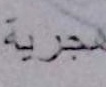 مجرية